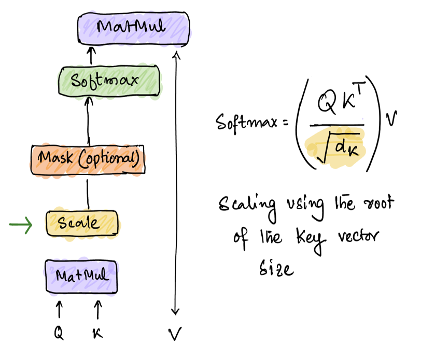 MatMul
Softmax
Mask (optional)
Scale
MatMul
Q K V
Softmax = (QKᵀ / √dₖ) V
Scaling using the root
of the key vector
size